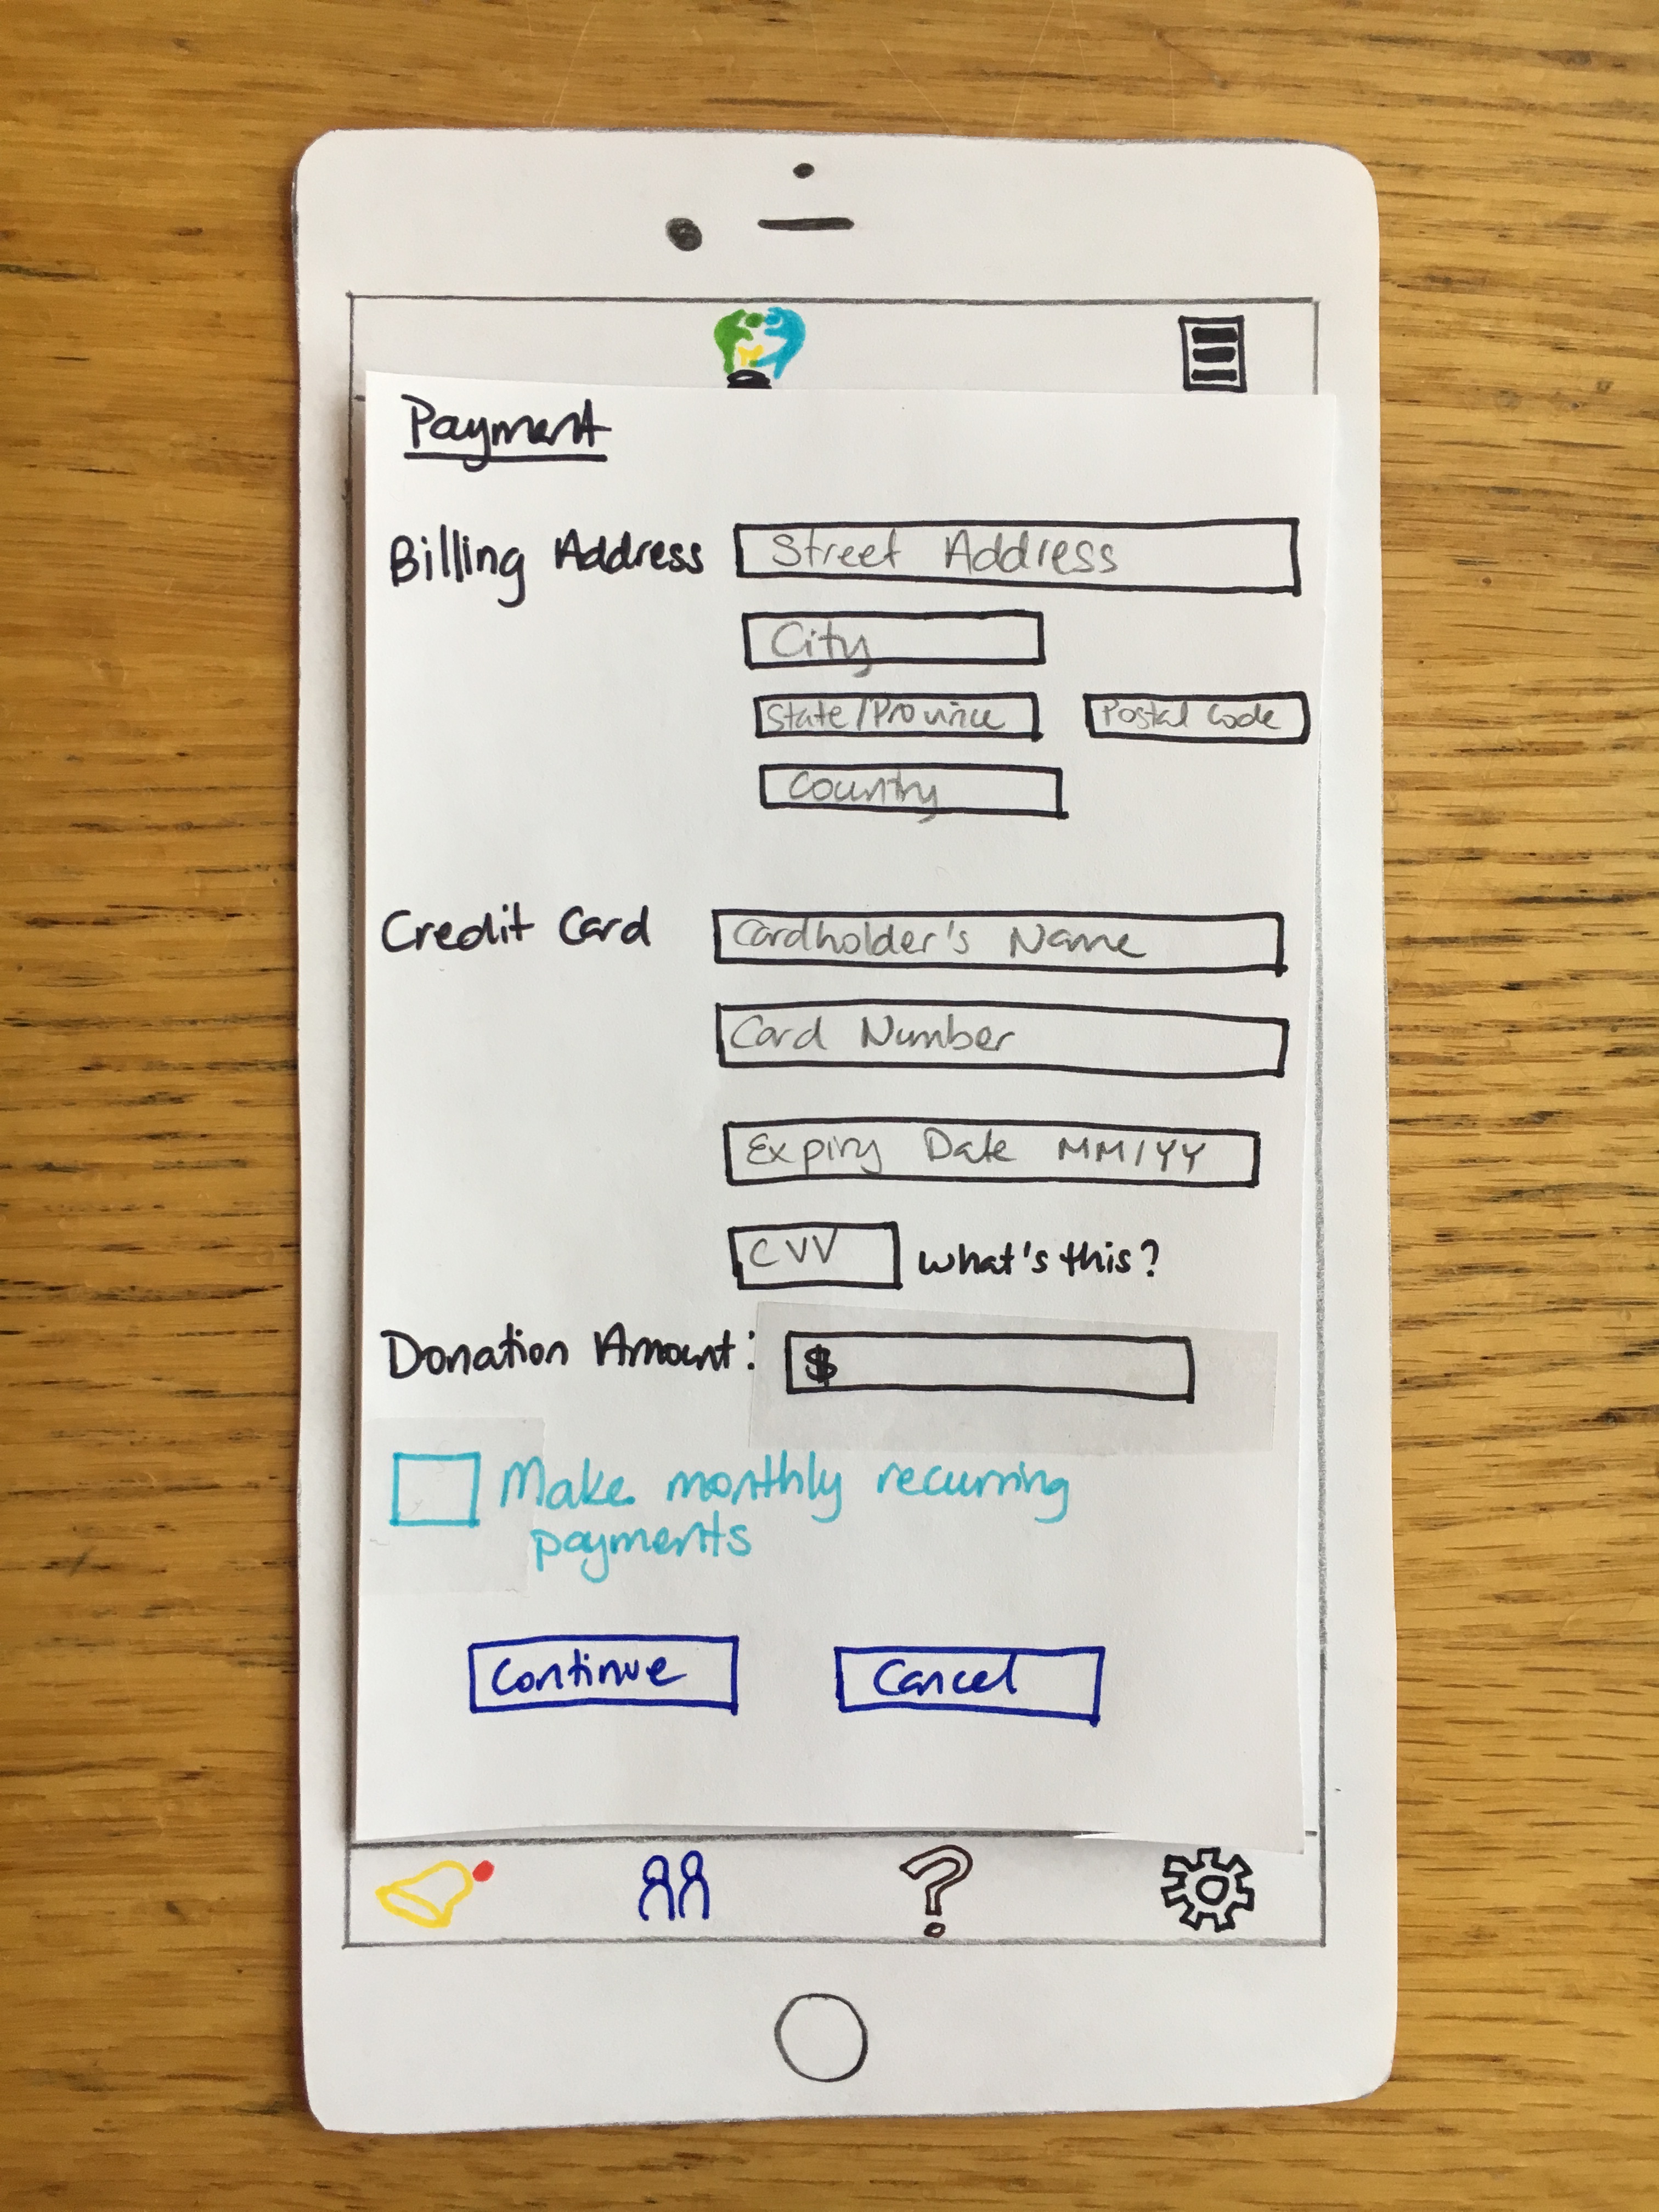 Payment
Billing Address Street Address
City
State/Province Postal Code
Country
Credit Card Cardholder's Name
Card Number
Expiry Date MM/YY
CVV What's this?
Donation Amount: $
Make monthly recurring
payments
Continue Cancel
?